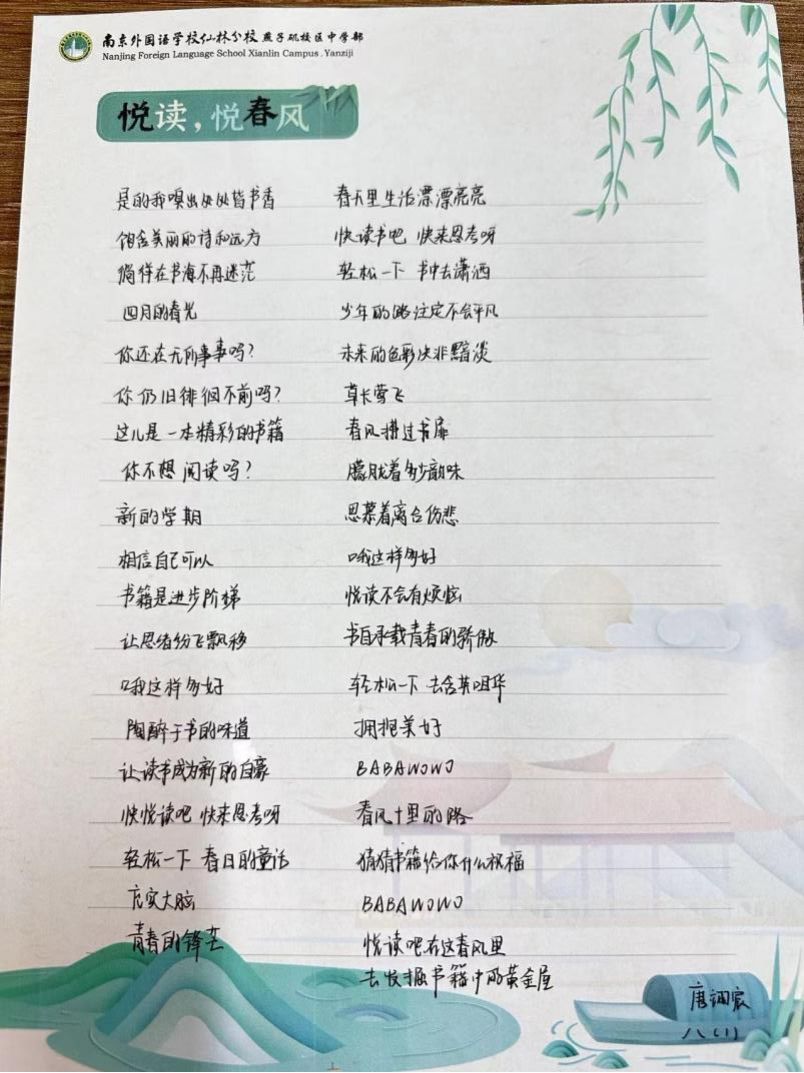 南京外国语学校仙林分校 燕子矶校区中学部
Nanjing Foreign Language School Xianlin Campus . Yanziji
悦读，悦春风
是的我嗅出处处皆书香
饱含美丽的诗和远方
徜徉在书海不再迷茫
四月的春光
你还在无所事事吗？
你仍旧徘徊不前吗？
这儿是一本精彩的书籍
你不想阅读吗？
新的学期
相信自己可以
书籍是进步阶梯
让思绪纷飞飘移
哦这样多好
陶醉于书的味道
让读书成为新的自豪
快悦读吧 快来思考呀
轻松一下 春日的童话
充实大脑
青春的锋芒
春天里生活漂漂亮亮
快读书吧 快来思考呀
轻松一下 书中去潇洒
少年的路注定不会平凡
未来的色彩决非黯淡
草长莺飞
春风拂过书扉
朦胧着多少韵味
思慕着离合伤悲
哦这样多好
悦读不会有烦恼
书自承载青春的骄傲
轻松一下 去含英咀华
拥抱美好
BABAWOWO
春风十里的路
猜猜书籍给你什么祝福
BABAWOWO
悦读吧在这春风里
去发掘书籍中的黄金屋
唐诩宸
八（1）